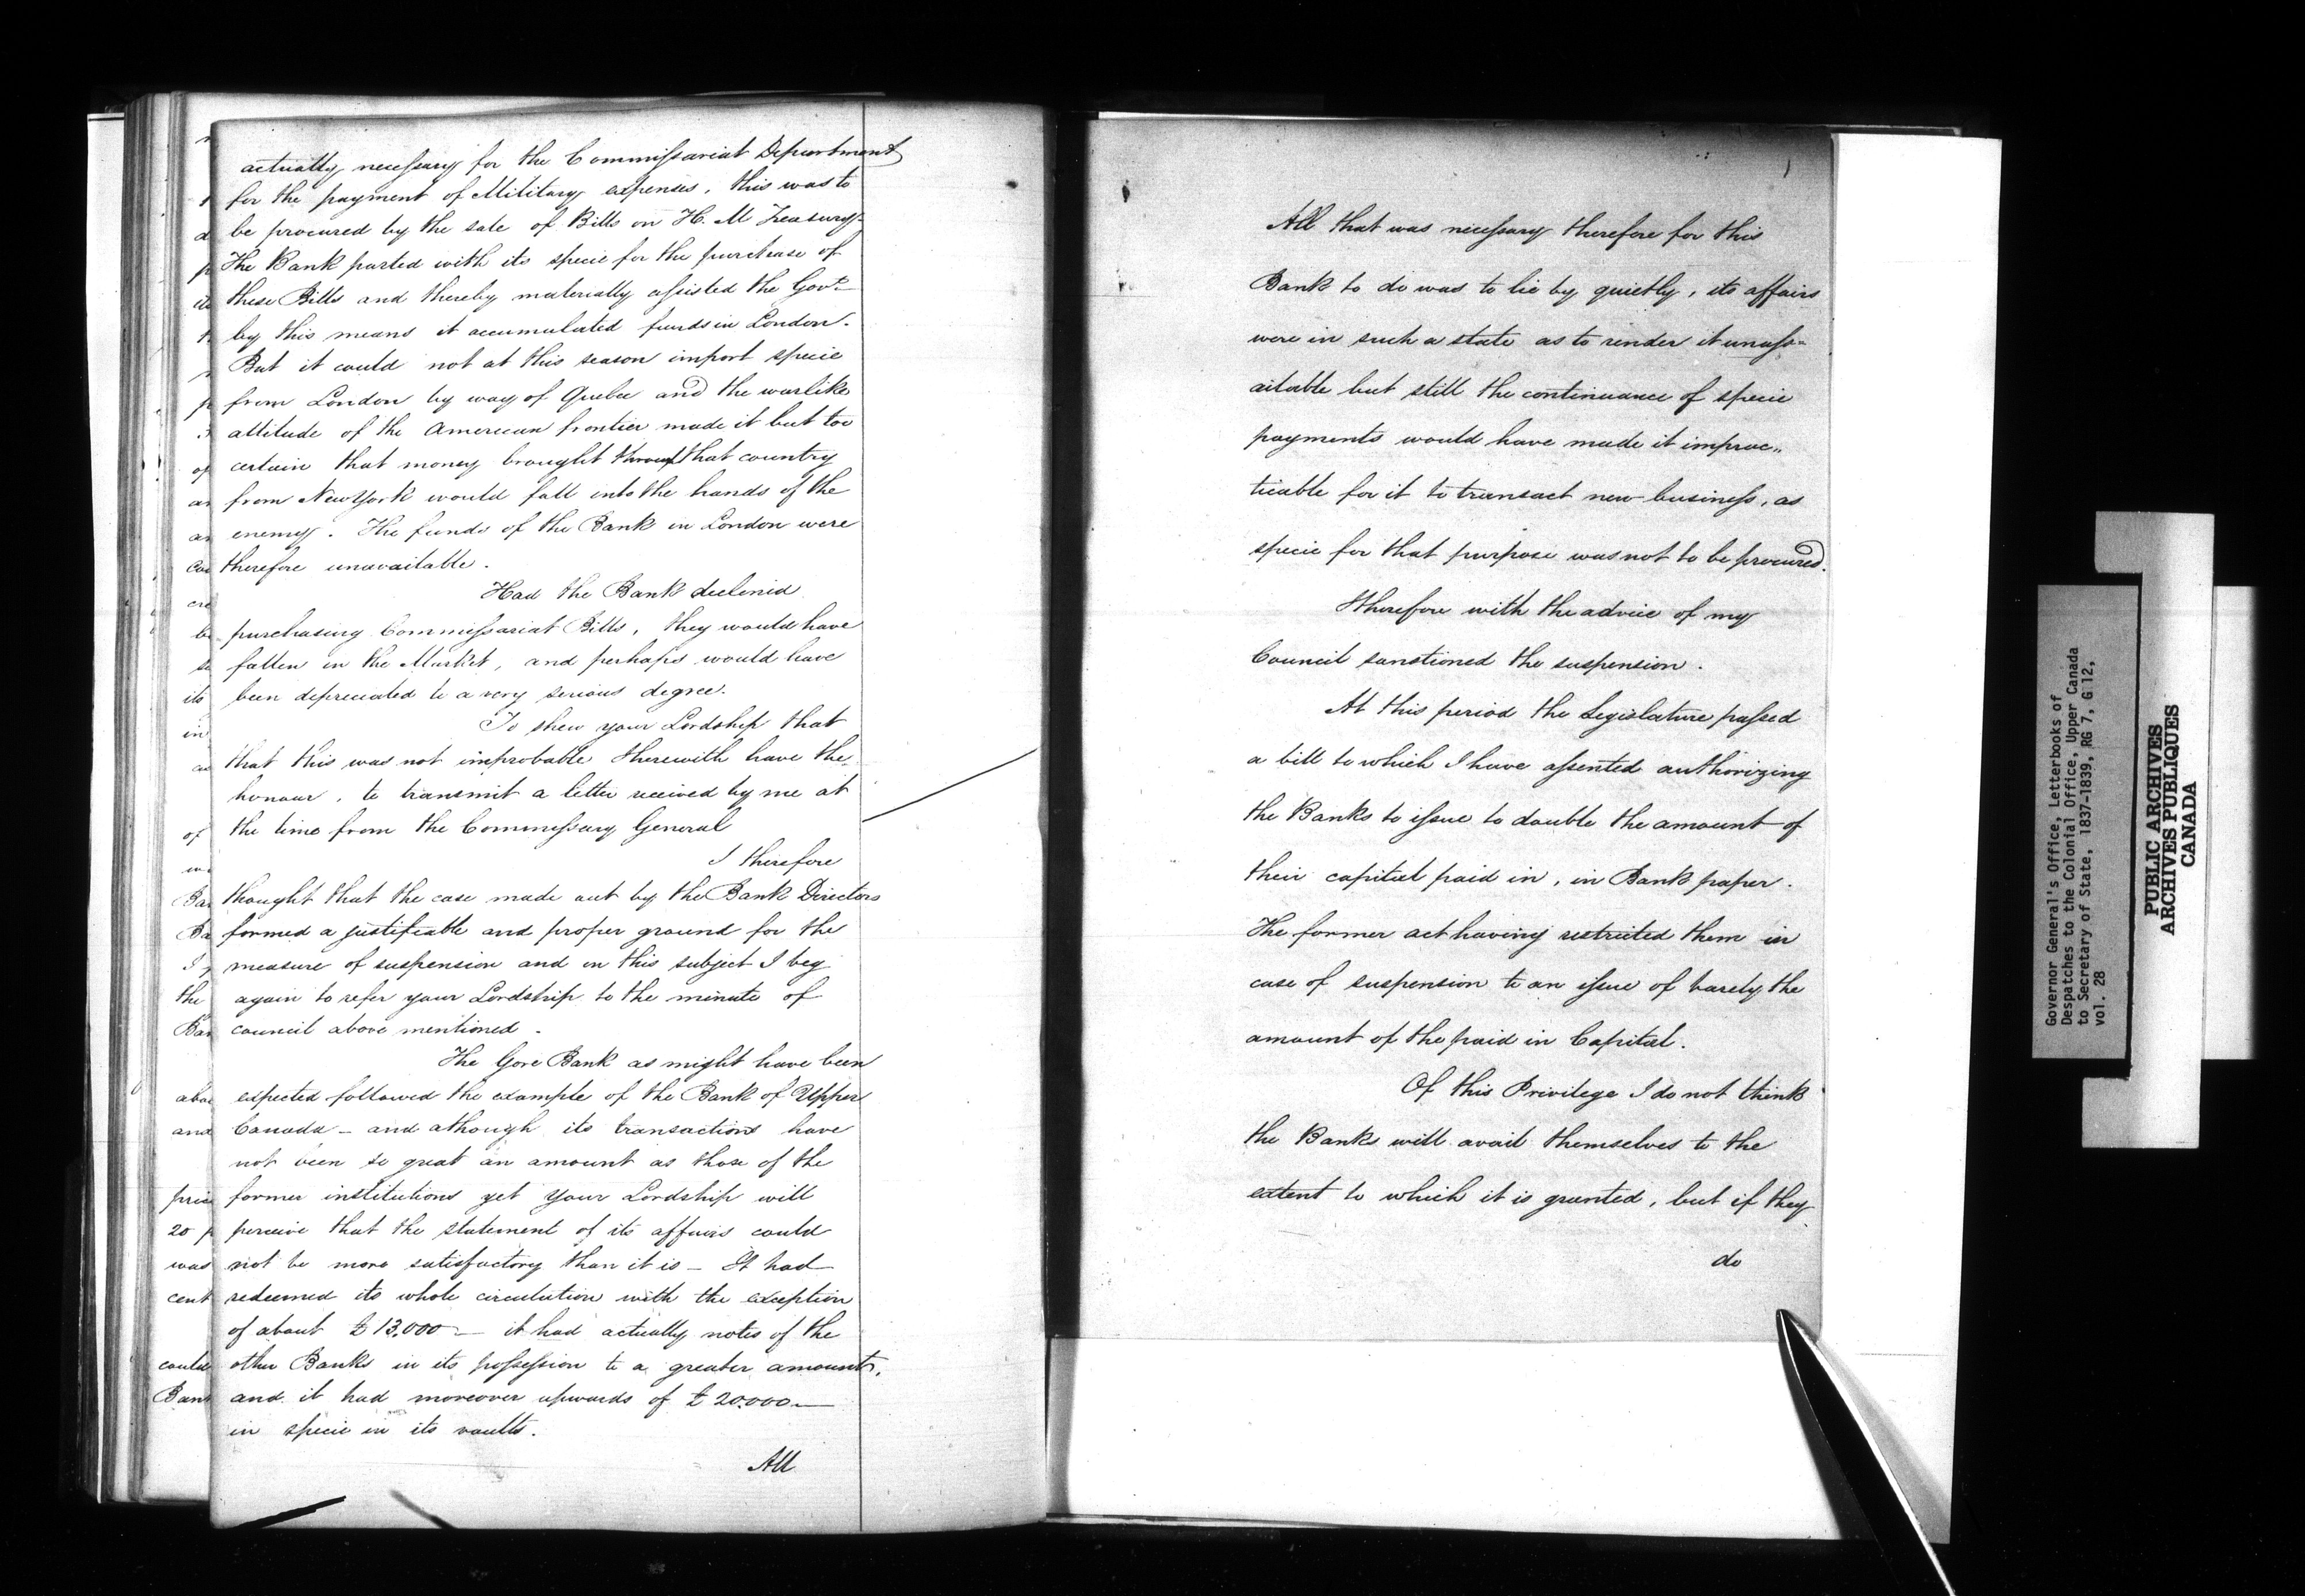 actually necessary for the Commissariat Department
for the payment of Military expenses, this was to
be procured by the sale of Bills on H. M Treasury
The Bank parted with its specie for the purchase of
these Bills and thereby materially assisted the Govt.
by this means it accumulated funds in London.
But it could not at this season import specie
from London by way of Quebec and the warlike
attitude of the American frontier made it but too
certain that money brought through that country
from New York would fall into the hands of the
enemy. The funds of the Bank in London were
therefore unavailable.
Had the Bank declined
purchasing Commissariat Bills, they would have
fallen in the Market, and perhaps would have
been depreciated to a very serious degree.
To shew your Lordship that
that this was not improbable I herewith have the
honour, to transmit a letter received by me at
the time from the Commissary General
I therefore
thought that the case made out by the Bank Directors
formed a justifiable and proper ground for the
measure of suspension and on this subject I beg
again to refer your Lordship to the minute of
council above mentioned.
The Gore Bank as might have been
expected followed the example of the Bank of Upper
Canada - and athough its transactions have
not been so great an amount as those of the
former institutions yet your Lordship will
perceive that the statement of its affairs could
not be more satisfactory than it is - It had
redeemed its whole circulation with the exception
of about £13,000 - it had actually notes of the
other Banks in its possession to a greater amount,
and it had moreover upwards of £20.000 -
in specie in its vaults.
All
All that was necessary therefore for this
Bank to do was to lie by quietly, its affairs
were in such a state as to render it unass=
ailable but still the continuance of specie
payments would have made it imprac„
ticable for it to transact new business, as
specie for that purpose was not to be procured.
I therefore with the advice of my
Council sanctioned the suspension.
At this period the Legislature passed
a bill to which I have assented authorizing
the Banks to issue to double the amount of
their capital paid in, in Bank paper.
The former act having restricted them in
case of suspension to an issue of barely the
amount of the paid in Capital.
Of this Privilege I do not think
the Banks will avail themselves to the
extent to which it is granted, but if they
do
Governor General's Office, Letterbooks of
Despatches to the Colonial Office, Upper Canada
to Secretary of State, 1837-1839, RG 7, G 12,
vol. 28
PUBLIC ARCHIVES
ARCHIVES PUBLIQUES
CANADA